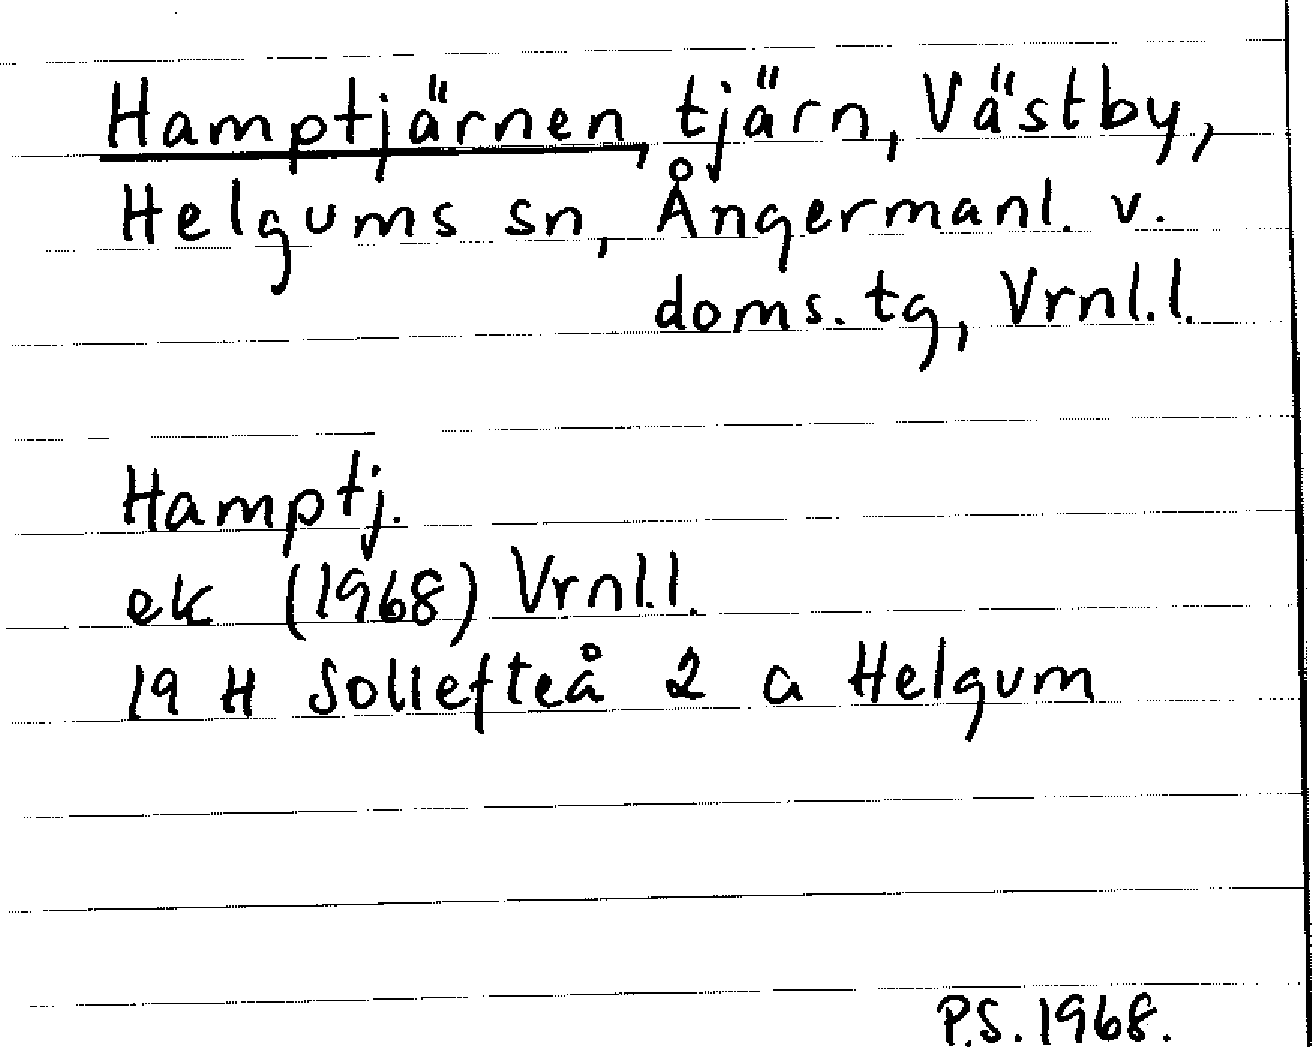 Hamptjärnen, tjärn, Västby,
Helgums sn, Ångermanl. v.
doms. tg, Vrnl.l.
Hamptj.
ek (1968) Vrnl.l.
19 H Sollefteå 2 a Helgum
P.S. 1968.